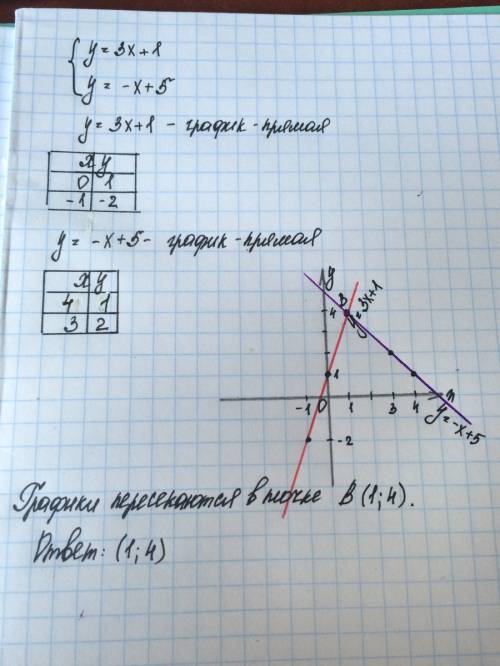 y = 3x+1
y = -x+5
y = 3x+1 - график-прямая
x y
0 1
-1 -2
y = -x+5 - график-прямая
x y
4 1
3 2
y
B
y=3x+1
4
1
-1 0 1 3 4
-2
y=-x+5
Графики пересекаются в точке B (1; 4).
Ответ: (1; 4)